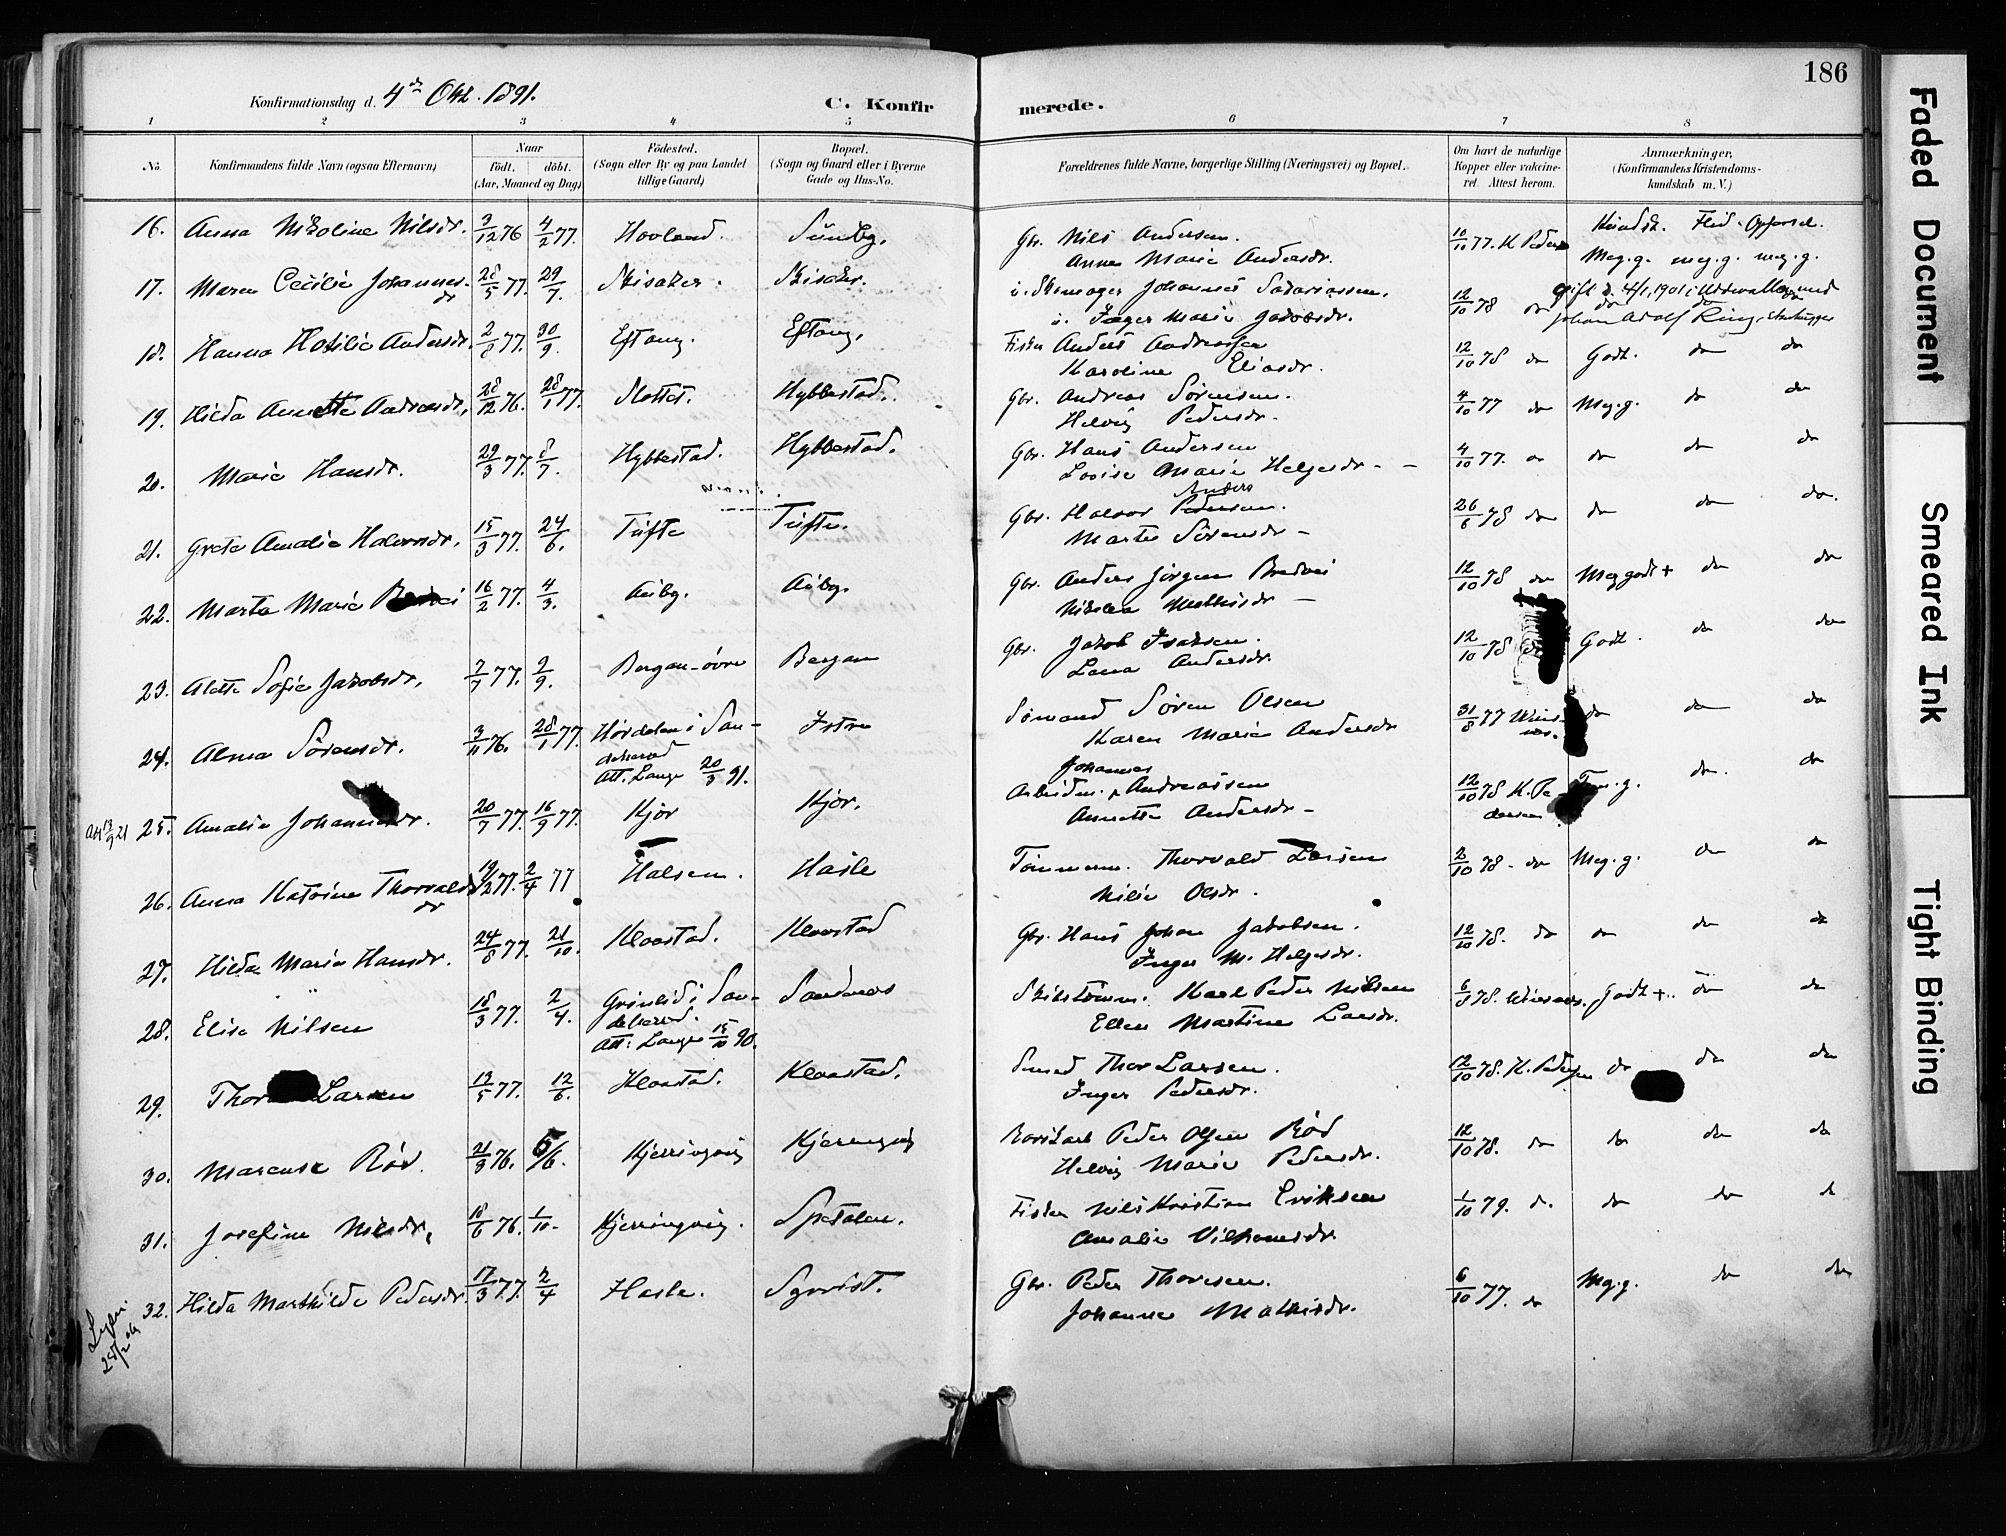 186
Konfirmationsdag d. 4de Okt. 1891.
C. Konfirmerede.
1 2 3 4 5 6 7 8
No.
Konfirmandens fulde Navn (ogsaa Efternavn)
Naar
født. døbt.
(Aar, Maaned og Dag)
Fødested.
(Sogn eller By og paa Landet
tillige Gaard)
Bopæl.
(Sogn og Gaard eller i Byerne
Gade og Hus-No.
Forældrenes fulde Navne, borgerlige Stilling (Næringsvei) og Bopæl.
Om havt de naturlige
Kopper eller vakcine-
ret. Attest herom.
Anmærkninger,
(Konfirmandens Kristendoms-
kundskab m. V.)
Kundsk. Flid. Opførsel.
16. Anna Nikoline Nilsdr. 3/12 76 4/2 77. Hovland. Sundby. Gbr. Nils Andersen. 10/10 77. K Peders
Anne Marie Andersdr. Meg.g. meg.g. meg.g.
17. Maren Cecilie Johannesdr 28/5 77. 29/7. Skisaker. Skisaker. u. Skomager Johannes Sakariassen. 12/10 78 do
u. Inger Marie Jakobsdr.
gift d. 4/1, 1901 i Uddevalla med
Johan Adolf Ring,
18. Hanna Hotilie Andersdr. 2/8 77. 30/9. Eftang. Eftang. Fisker Anders Andreassen 12/10 78 do Godt. do do
Karoline Eliasdr.
19. Hilda Annette Andreasdr. 28/12 76. 28/1 77. Slottet. Hybbestad. Gbr. Andreas Sørensen. 4/10 77 do Meg.g. do do
Helvig Pedersdr.
20. Marie Hansdr. 29/3 77. 8/7. Hybbestad. Hybbestad. Gbr. Hans Andersen 4/10 77. do do do do
Lovise Marie Helgesdr.
21. Grete Amalie Halvorsdr. 15/3 77. 24/6. Tufte Tufte. Gbr. Halvor Anders Pedersen. 26/6 78 do do do do.
Marte Sørensdr
22. Marta Marie Bredvei 16/2 77. 4/3. Auby. Auby. Gbr. Anders Jørgen Bredvei 12/10 78 do Meg godt + do do
Nikolea Mathisdr
23. Alette Sofie Jakobsdr. 2/7 77. 2/9. Bergan-øvre Bergan Gbr. Jakob Isaksen. 12/10 78 do Godt. do do
Lena Andersdr.
24. Alma Sørensdr. 3/11 76. 28/1 77. Hørdalen i San-
deherad
Att. Lange 20/3 91.
Istre Sømand Søren Olsen 31/8 77 do do do
Karen Marie Andersdr
Att 13/9 21 25. Amalie Johannesdr. 20/7 77. 16/9 77. Kjør Kjør. Arbeidsm. Johannes Andreassen 12/10 78 K. Pedersen g. do. do
Annette Andersdr
26. Anna Katrine Thorvaldsdr 19/2 77. 2/4 77 Halsen. Hasle Tømmerm. Thorvald Larsen 2/10 78 do Meg.g. do do
Nilia Olsdr.
27. Hilda Marie Hansdr. 24/8 77. 21/10. Klaastad. Klaastad Gbr. Hans Johan Jakobsen. 12/10 78. do do do do
Inger M. Helgesdr.
28. Elise Nilsen 18/3 77. 2/4. Grinlid i San-
deherad.
Att: Lange 15/10 90.
Sandnæs Skibstømm. Karl Peder Nilsen 6/8 78. Godt +. do do
Ellen Martine Larsdr.
29. Thora Larsen 13/5 77. 12/6. Klaastad. Klaastad. Smed Thor Larsen. 12/10 78. K. Pedersen do do do
Inger Pedersdr.
30. Marcuse Röd. 21/3 76. 5/6. Kjerringvig Kjerringvig Peder Olsen Röd 12/10 78. do do do do
Helvig Marie Pedersdr.
31. Josefine Nilsdr. 18/6 76. 1/10. Kjerringvig. Spetalen. Fisker Nils Kristian Eriksen 1/10 79. do do do do
Amalie Vilhomsdr.
32. Hilda Marthilde Pedersdr. 17/3 77. 2/4 Hasle. Sqvist. Gbr. Peder Thoresen. 6/10 77. do Meg.g. do do
Johanne Mathisdr.
Faded Document
Smeared Ink
Tight Binding